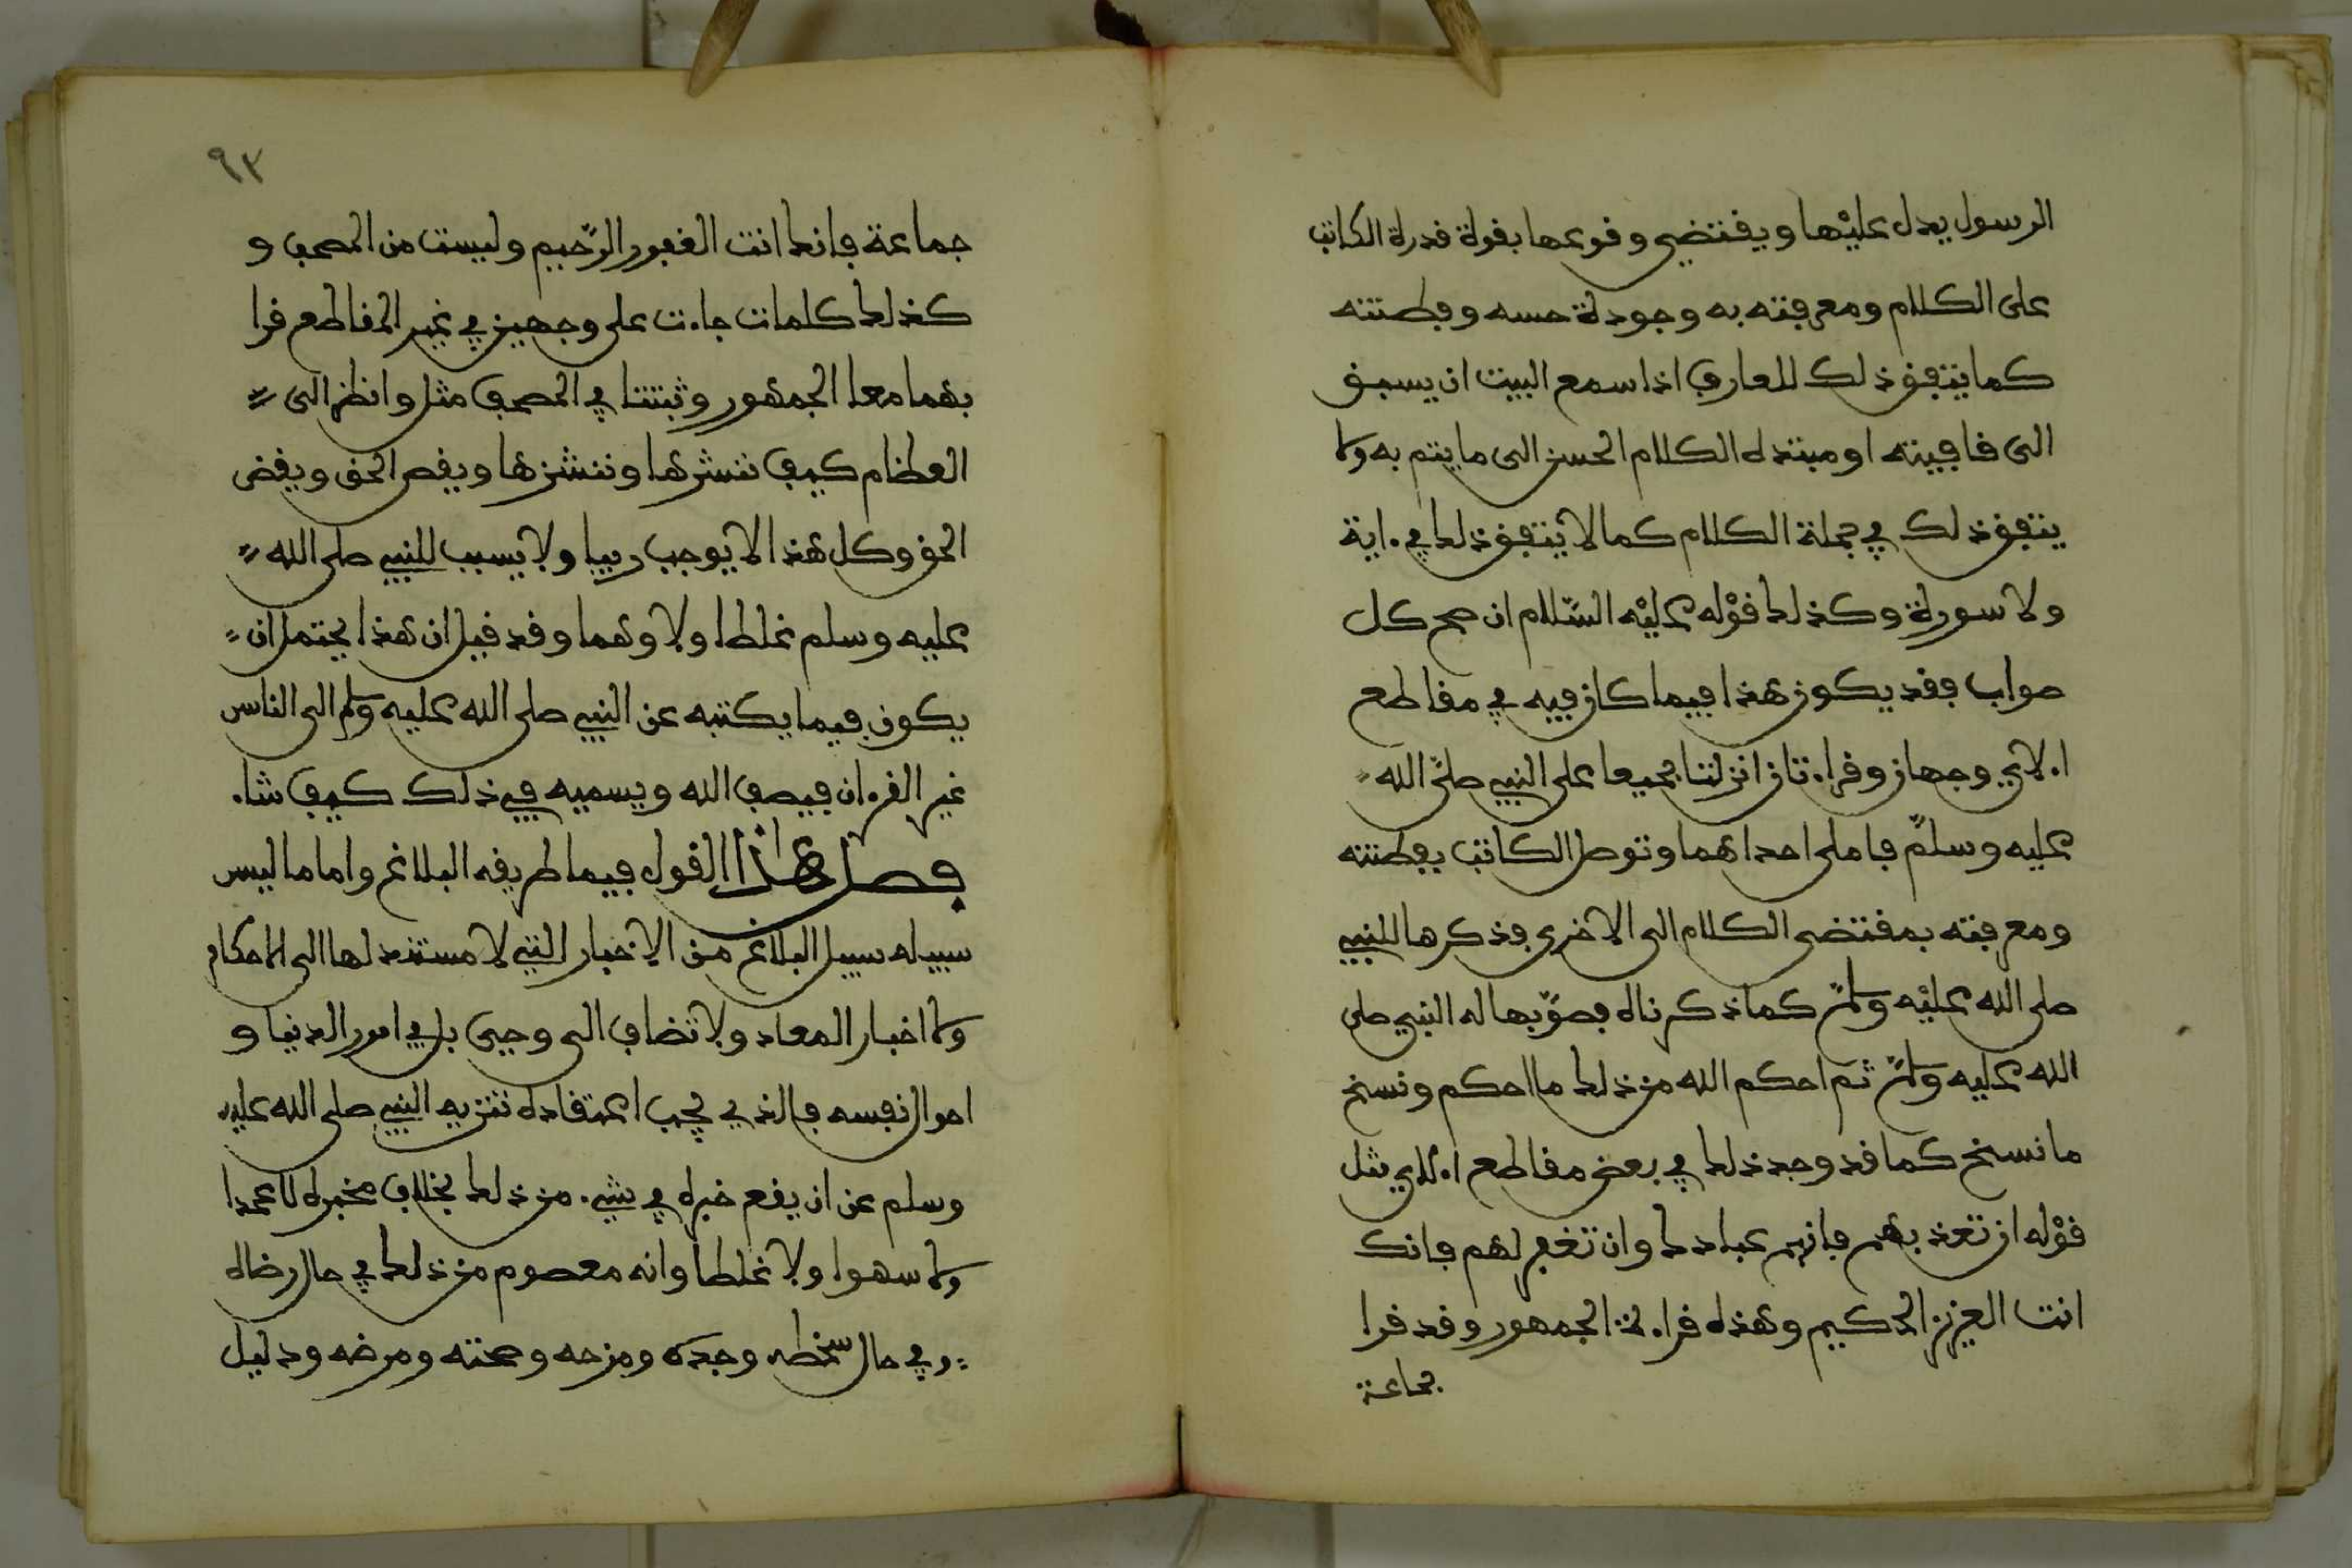 الرسول يدل عليْها ويقتضي وقوعها بقوة قدرة الكاتب
على الكلام ومعرفته به وجودة حسه وفطنته
كما يتفق ذلك للعارف اذا سمع البيت ان يسبق
الى قافيته او مبتدا الكلام الحسن الى ما يتم به ولا
يتفق ذلك في جملة الكلام كما لا يتفق ذلك في ءاية
ولا سورة وكذلك قوْله عليْه السّلام ان صح كل
صواب فقد يكون هذا فيما كان فيه في مقاطع
الاي وجهان وقراءتان انزلتا جميعا على النبي صلّى الله
عليه وسلمّ فاملى احداهما وتوصل الكاتب بفطنته
ومعرفته بمقتضى الكلام الى الاخرى فذكرها للنبي
صلى الله عليْه وسلمّ كما ذكرناه فصوّبها له النبي صلى
الله عليه وسلمّ ثم احكم الله من ذلك ما احكم ونسخ
ما نسخ كما قد وجد ذلك في بعض مقاطع الاي مثل
قوْله ان تعذبهم فانهم عبادك وان تغفر لهم فانك
انت العزيز الحكيم وهذه قراءة الجمهور وقد قرا
جماعة
٩٣
جماعة فانك انت الغفور الرّحيم وليست من المصحف و
كذلك كلمات جاءت على وجهين في غير المقاطع قرا
بهما معا الجمهور وثبتتا في المصحف مثل وانظر الى
العظام كيف ننشرها وننشزها ويقص الحق ويقض
الحق وكل هذا لا يوجب ريبا ولا يسبب للنبي صلى الله
عليه وسلم غلطا ولا وهما وقد قيل ان هذا يحتمل ان
يكون فيما يكتبه عن النبي صلى الله عليه وسلم الى الناس
غير القرءان فيصف الله ويسميه في ذلك كيف شاء
فصل هذا القول فيما طريقه البلاغ واما ما ليس
سبيله سبيل البلاغ من الاخبار التي لا مستند لها الى الاحكام
ولا اخبار المعاد ولا تضاف الى وحي بل في امور الدنيا و
احوال نفسه فالذي يجب اعتقاده تنزيه النبي صلى الله عليه
وسلم عن ان يقع خبره في شيء من ذلك بخلاف مخبره لا عمدا
ولا سهوا ولا غلطا وانه معصوم من ذلك في حال رضاه
وفي حال سخطه وجده ومزحه وصحته ومرضه ودليل